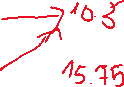 10.5
15.75